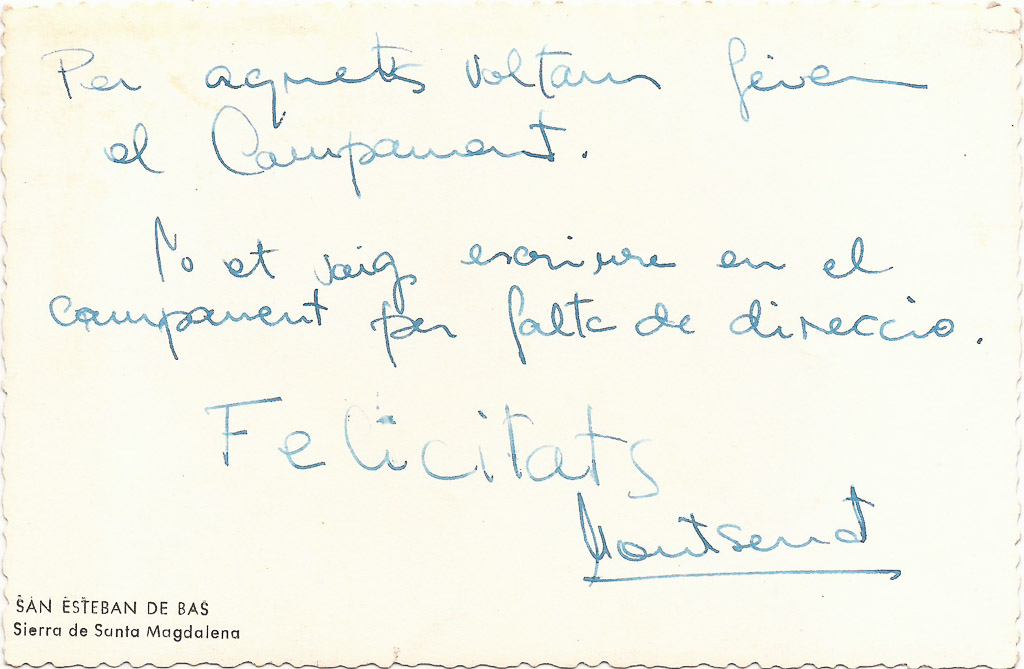 Per aquets voltans féiem
el Campament.
No et vaig escriure en el
campament per falta de direccio.
Felicitats
Montserrat
SAN ESTEBAN DE BAS
Sierra de Santa Magdalena